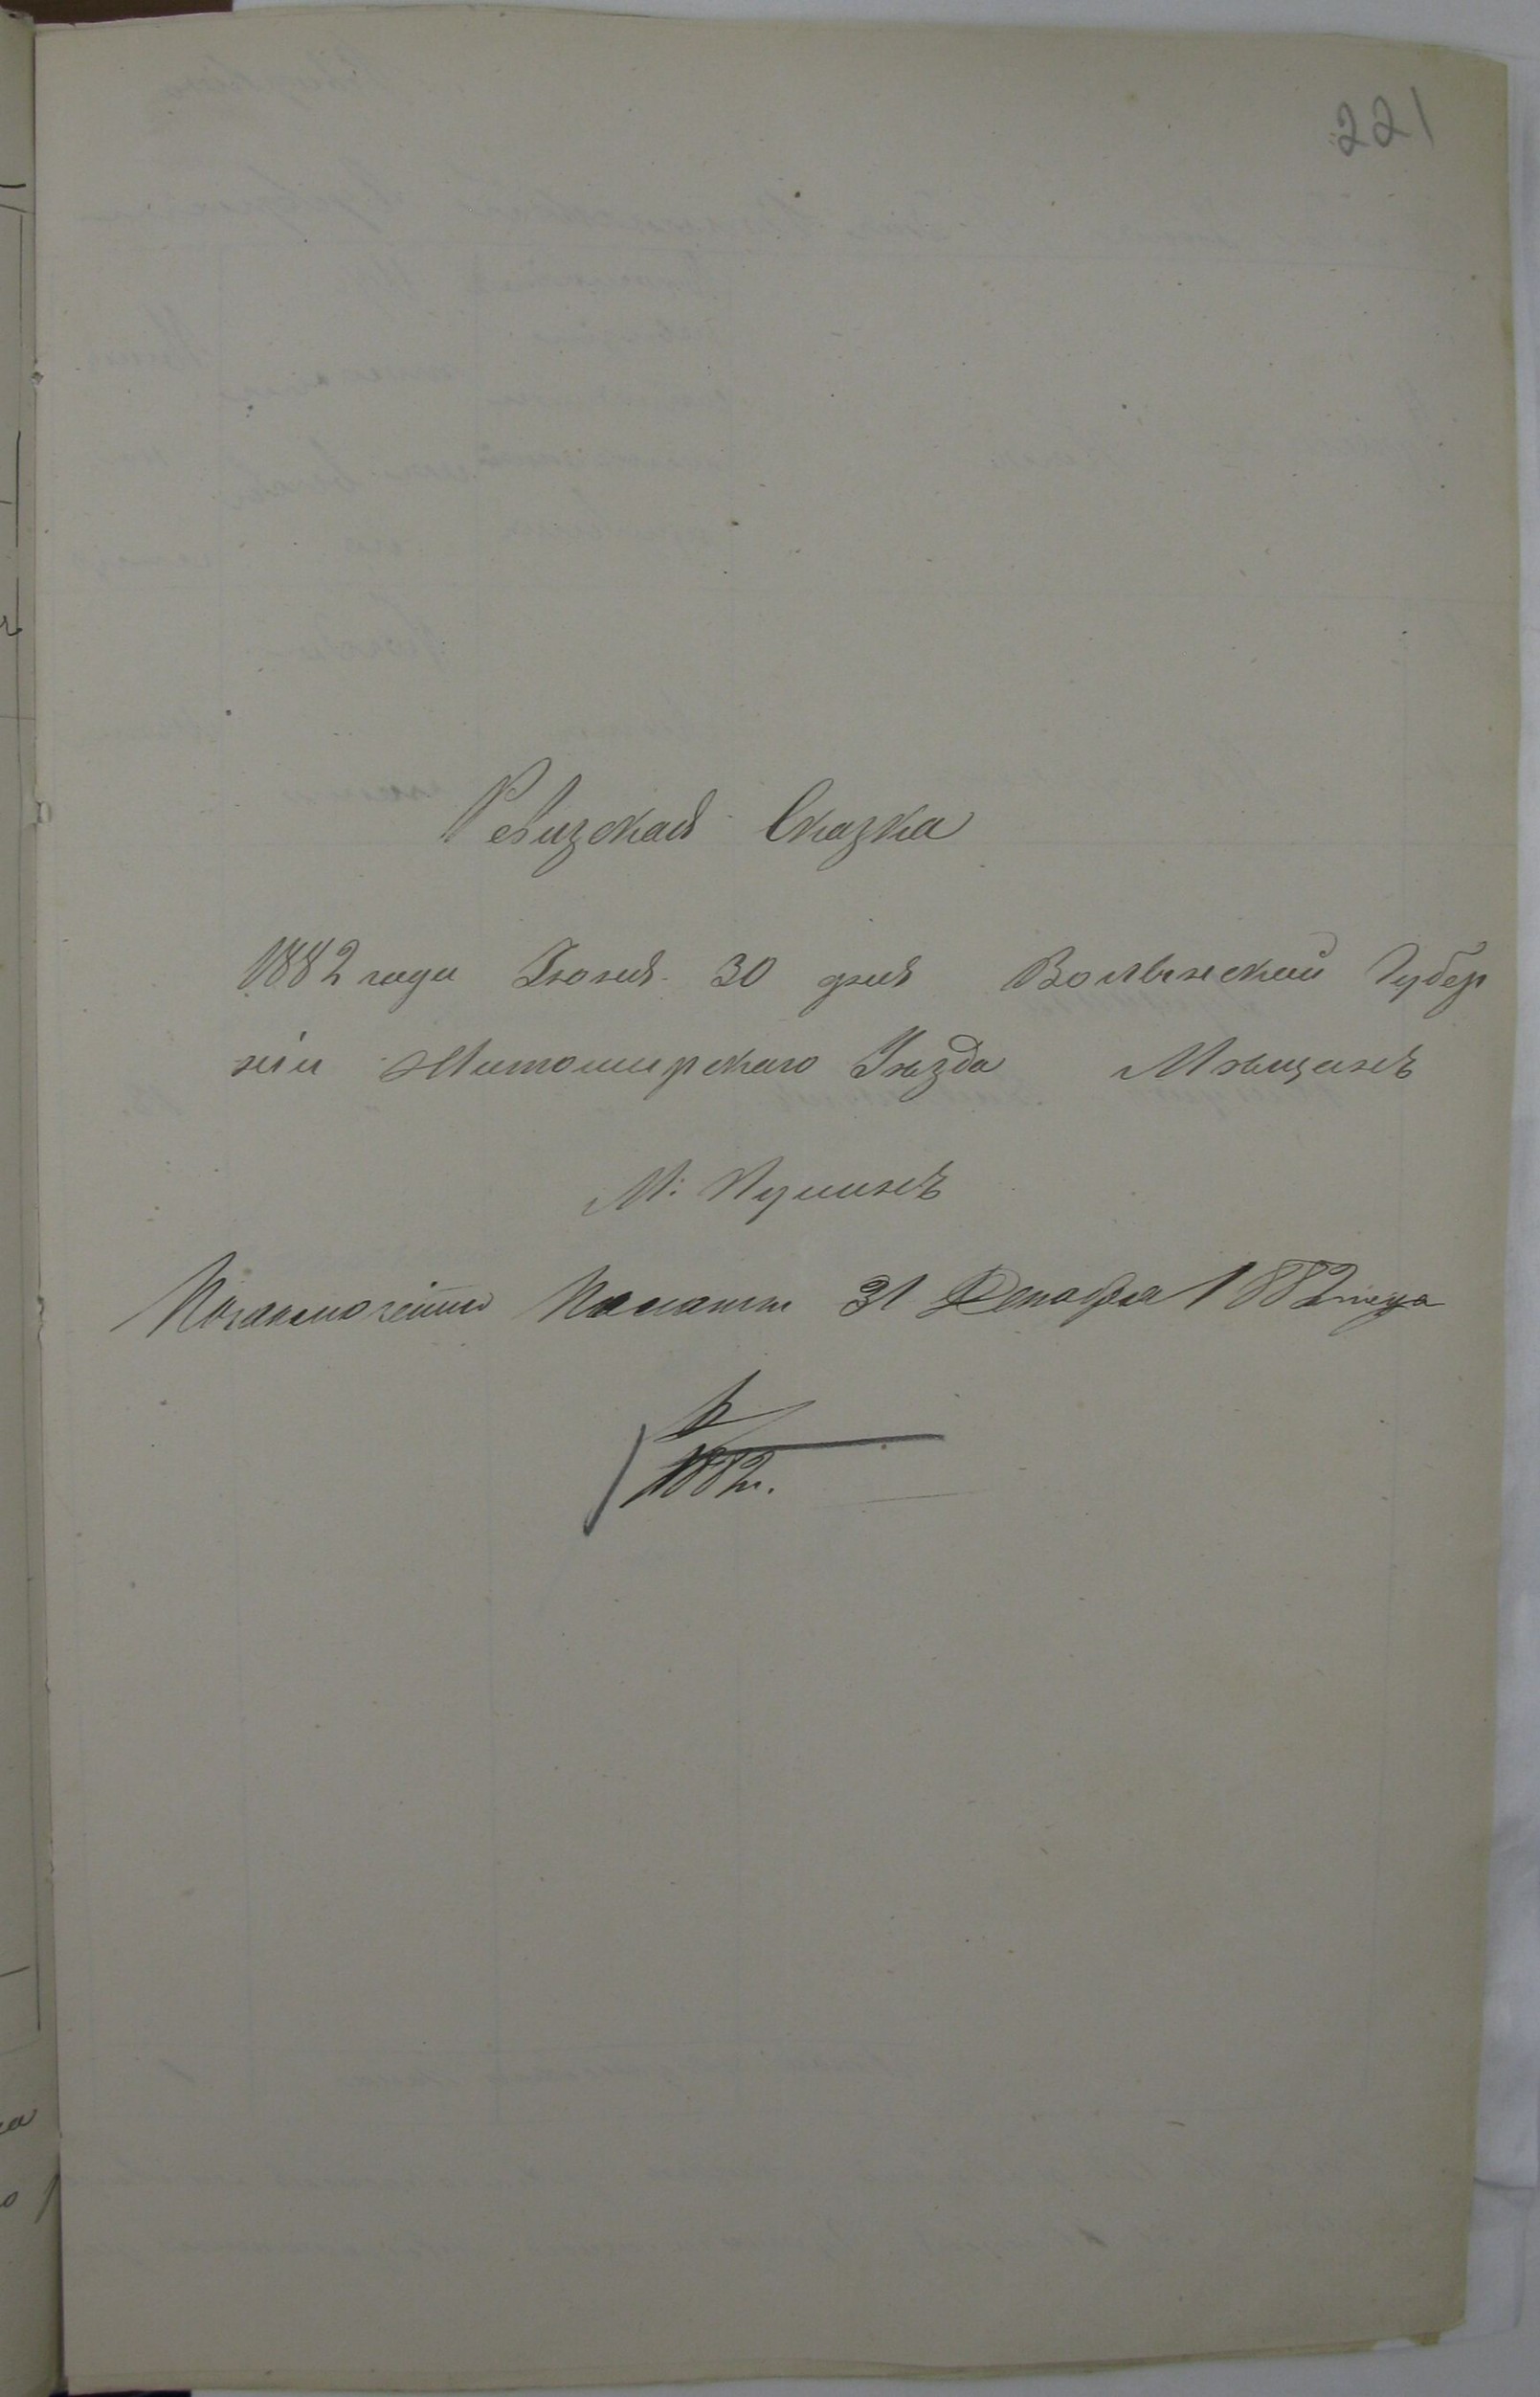 221
Ревизская Сказка
1882 года Іюня 30 дня Волынской Губер
ніи Житомирскаго Уѣзда Мѣщанъ
М: Пулинъ
Палаты 31 Декабря 1882 года
1882 г.